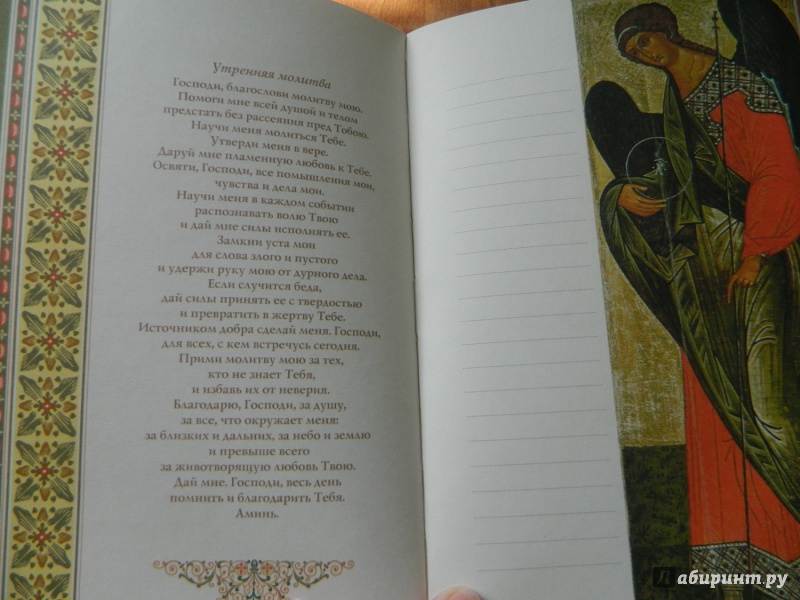 Утренняя молитва
Господи, благослови молитву мою.
Помоги мне всей душой и телом
предстать без рассеяния пред Тобою.
Научи меня молиться Тебе.
Утверди меня в вере.
Даруй мне пламенную любовь к Тебе.
Освяти, Господи, все помышления мои,
чувства и дела мои.
Научи меня в каждом событии
распознавать волю Твою
и дай мне силы исполнять ее.
Замкни уста мои
для слова злого и пустого
и удержи руку мою от дурного дела.
Если случится беда,
дай силы принять ее с твердостью
и превратить в жертву Тебе.
Источником добра сделай меня. Господи,
для всех, с кем встречусь сегодня.
Прими молитву мою за тех,
кто не знает Тебя,
и избавь их от неверия.
Благодарю, Господи, за душу,
за все, что окружает меня:
за близких и дальних, за небо и землю
и превыше всего
за животворящую любовь Твою.
Дай мне. Господи, весь день
помнить и благодарить Тебя.
Аминь.
Лабиринт.ру